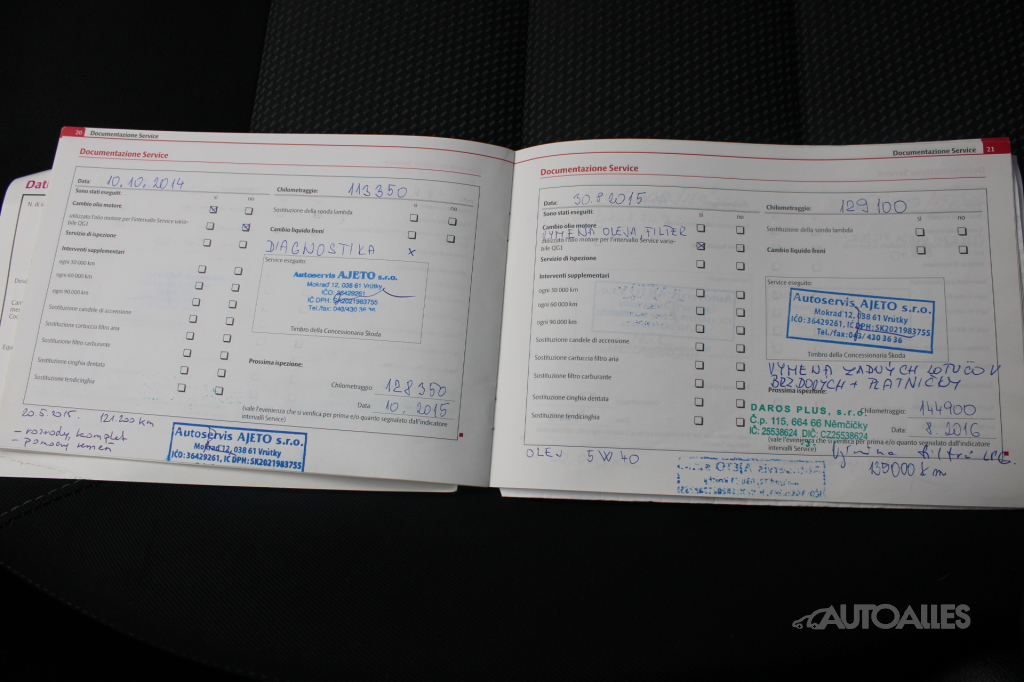 20 Documentazione Service
Documentazione Service
Data: 10.10.2014
Chilometraggio: 113350
Sono stati eseguiti:
sì no
Cambio olio motore
utilizzato l'olio motore per l'intervallo Service varia-
bile QG1
Servizio di ispezione
Interventi supplementari
ogni 30 000 km
ogni 60 000 km
ogni 90 000 km
Sostituzione candele di accensione
Sostituzione cartuccia filtro aria
Sostituzione filtro carburante
Sostituzione cinghia dentata
Sostituzione tendicinghia
sì no
Sostituzione della sonda lambda
Cambio liquido freni
DIAGNOSTIKA x
Service eseguito:
Autoservis AJETO s.r.o.
Mokraď 12, 038 61 Vrútky
IČO: 36429261
IČ DPH: SK2021983755
Tel./fax: 043/430 36 36
Timbro della Concessionaria Škoda
Prossima ispezione:
Chilometraggio: 128350
Data 10.2015
(vale l'evenienza che si verifica per prima e/o quanto segnalato dall'indicatore
intervalli Service)
20.5.2015. 121 200 km
- rozvody, komplet
- pomocný remeň
Autoservis AJETO s.r.o.
Mokraď 12, 038 61 Vrútky
IČO: 36429261, IC DPH: SK2021983755
Documentazione Service 21
Documentazione Service
Data: 30.8 2015
Chilometraggio: 129100
Sono stati eseguiti:
sì no
Cambio olio motore
VÝMENA OLEJA, FILTER
utilizzato l'olio motore per l'intervallo Service varia-
bile QG1
Servizio di ispezione
Interventi supplementari
ogni 30 000 km
ogni 60 000 km
ogni 90 000 km
Sostituzione candele di accensione
Sostituzione cartuccia filtro aria
Sostituzione filtro carburante
Sostituzione cinghia dentata
Sostituzione tendicinghia
OLEJ 5W40
sì no
Sostituzione della sonda lambda
Cambio liquido freni
Service eseguito:
Autoservis AJETO s.r.o.
Mokraď 12, 038 61 Vrútky
IČO: 36429261, IC DPH: SK2021983755
Tel./fax: 043/ 430 36 36
Timbro della Concessionaria Škoda
VÝMENA ZADNÝCH KOTÚČOV
BRZDOVÝCH + PLATNIČKY
Prossima ispezione:
DAROS PLUS, s.r.o.
Č.p. 115, 664 66 Němčičky
IČ: 25538624 DIČ: CZ25538624
Chilometraggio: 144900
Data: 8.2016
(vale l'evenienza che si verifica per prima e/o quanto segnalato dall'indicatore
intervalli Service)
Výměna filtrů LPG.
135000 km
AUTOALLES